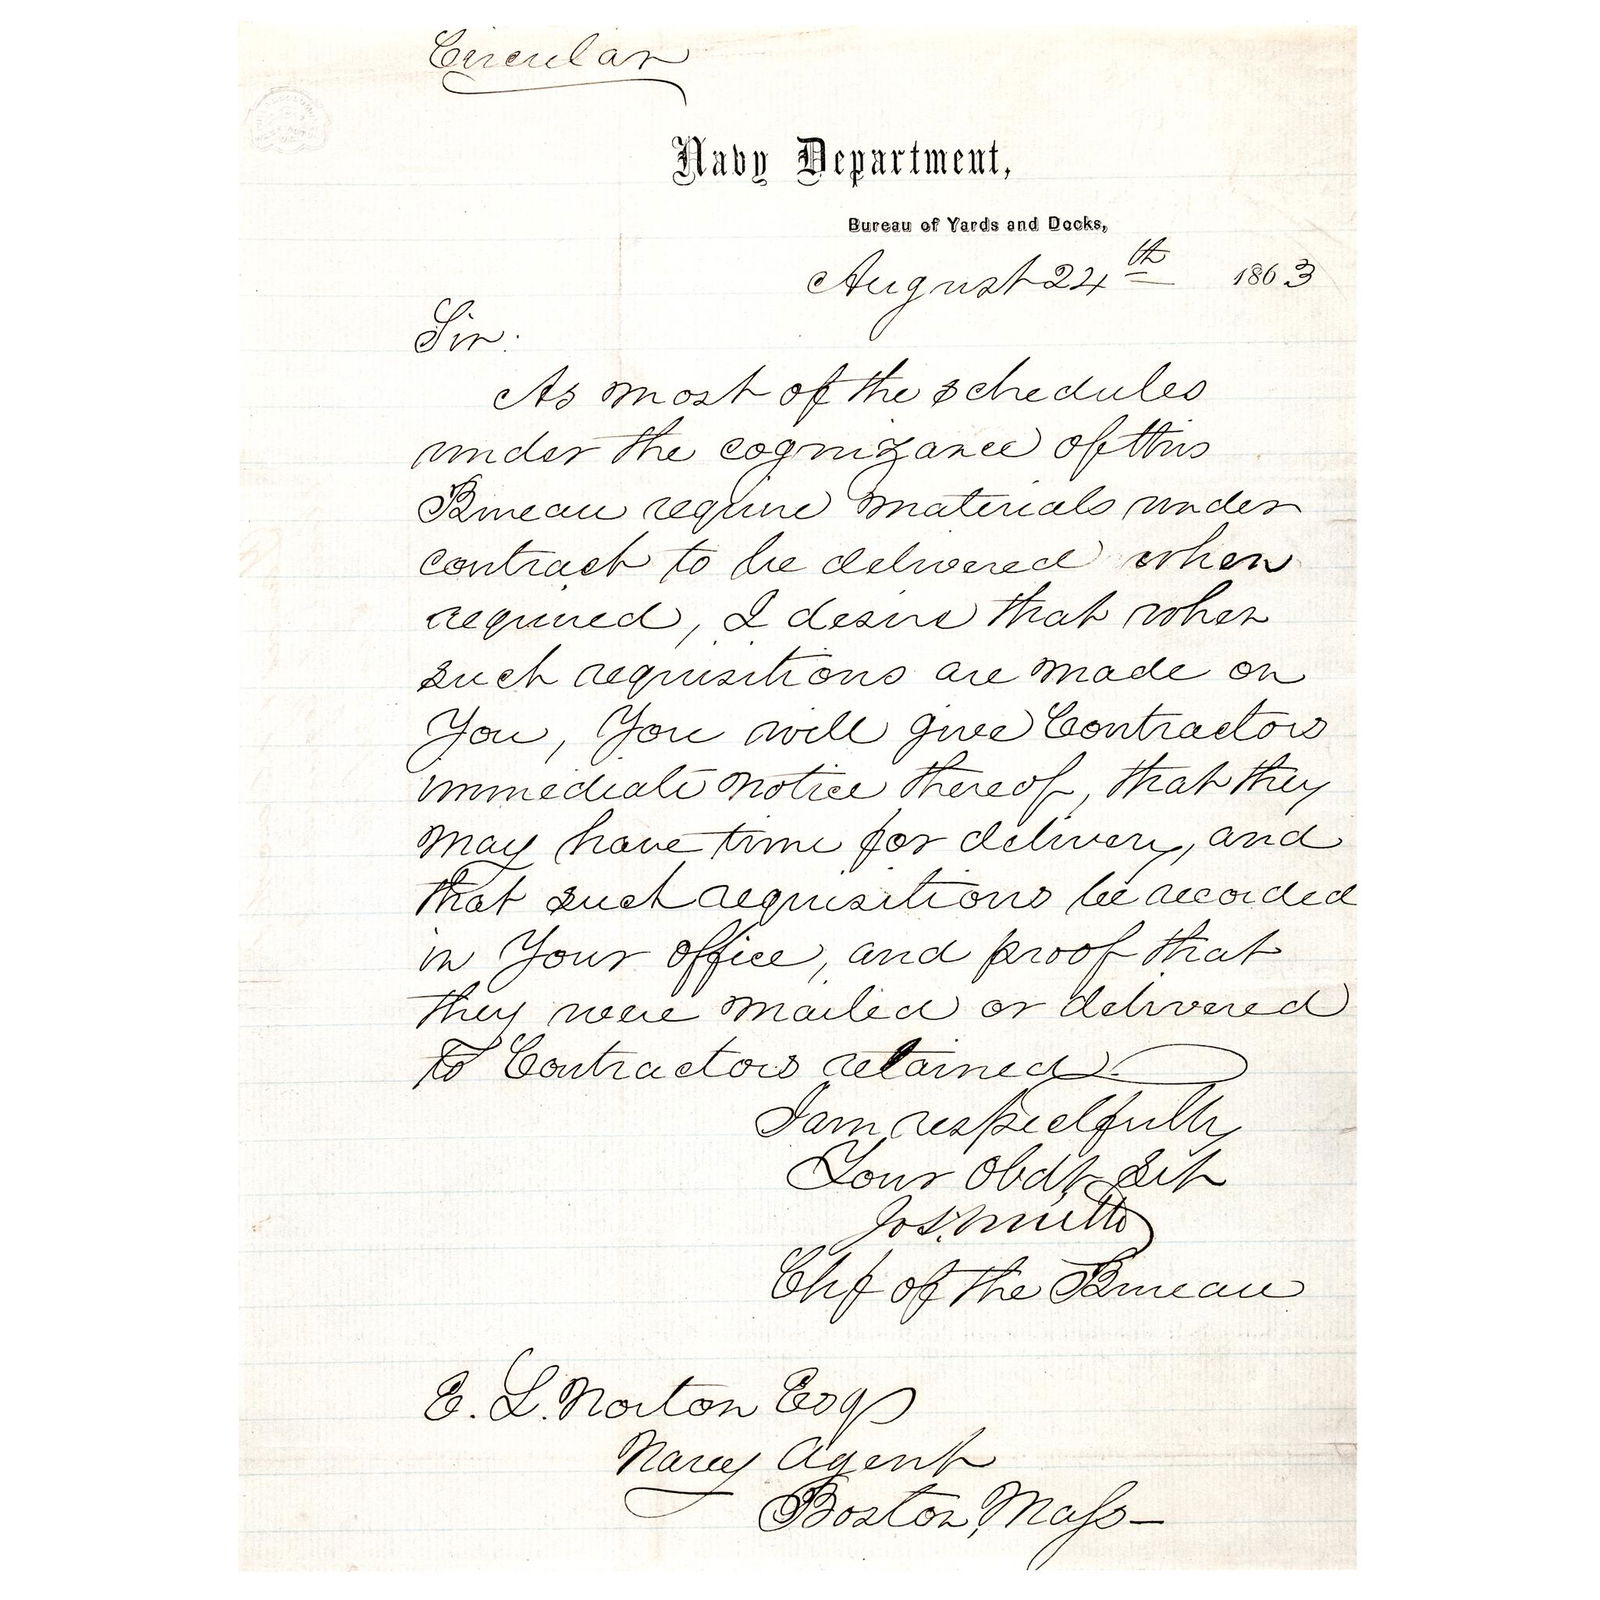 Circular
Navy Department,
Bureau of Yards and Docks,
August 24th 1863
Sir:
As most of the schedules
under the cognizance of this
Bureau require materials under
contract to be delivered when
required, I desire that when
such requisitions are made on
You, You will give Contractors
immediate notice thereof, that they
may have time for delivery, and
that such requisitions be recorded
in Your office, and proof that
they were mailed or delivered
to Contractors retained.
I am respectfully
Your Obdt Svt
Jos. Smith
Chf of the Bureau
E. L. Norton Esqr
Navy Agent
Boston, Mass—